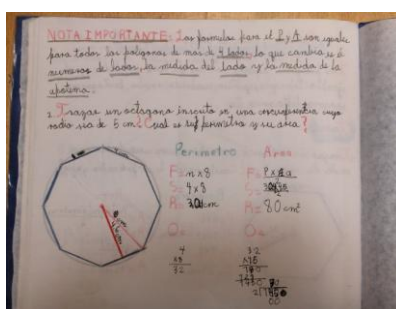 NOTA IMPORTANTE: Las formulas para el P y A son iguales
para todos los polígonos de mas de 4 lados, lo que cambia es el
numeros de lados, la medida del lado y la medida de la
apotema.
2. Trazar un octagono inscrito en una circunferencia cuyo
radio sea de 5 cm ¿Cual es su perimetro y su area?
Perimetro Area
F= n x 8
S= 4 x 8
R=
O=
F= P x a
S=
R= 80 cm²
O=
4
x8
32